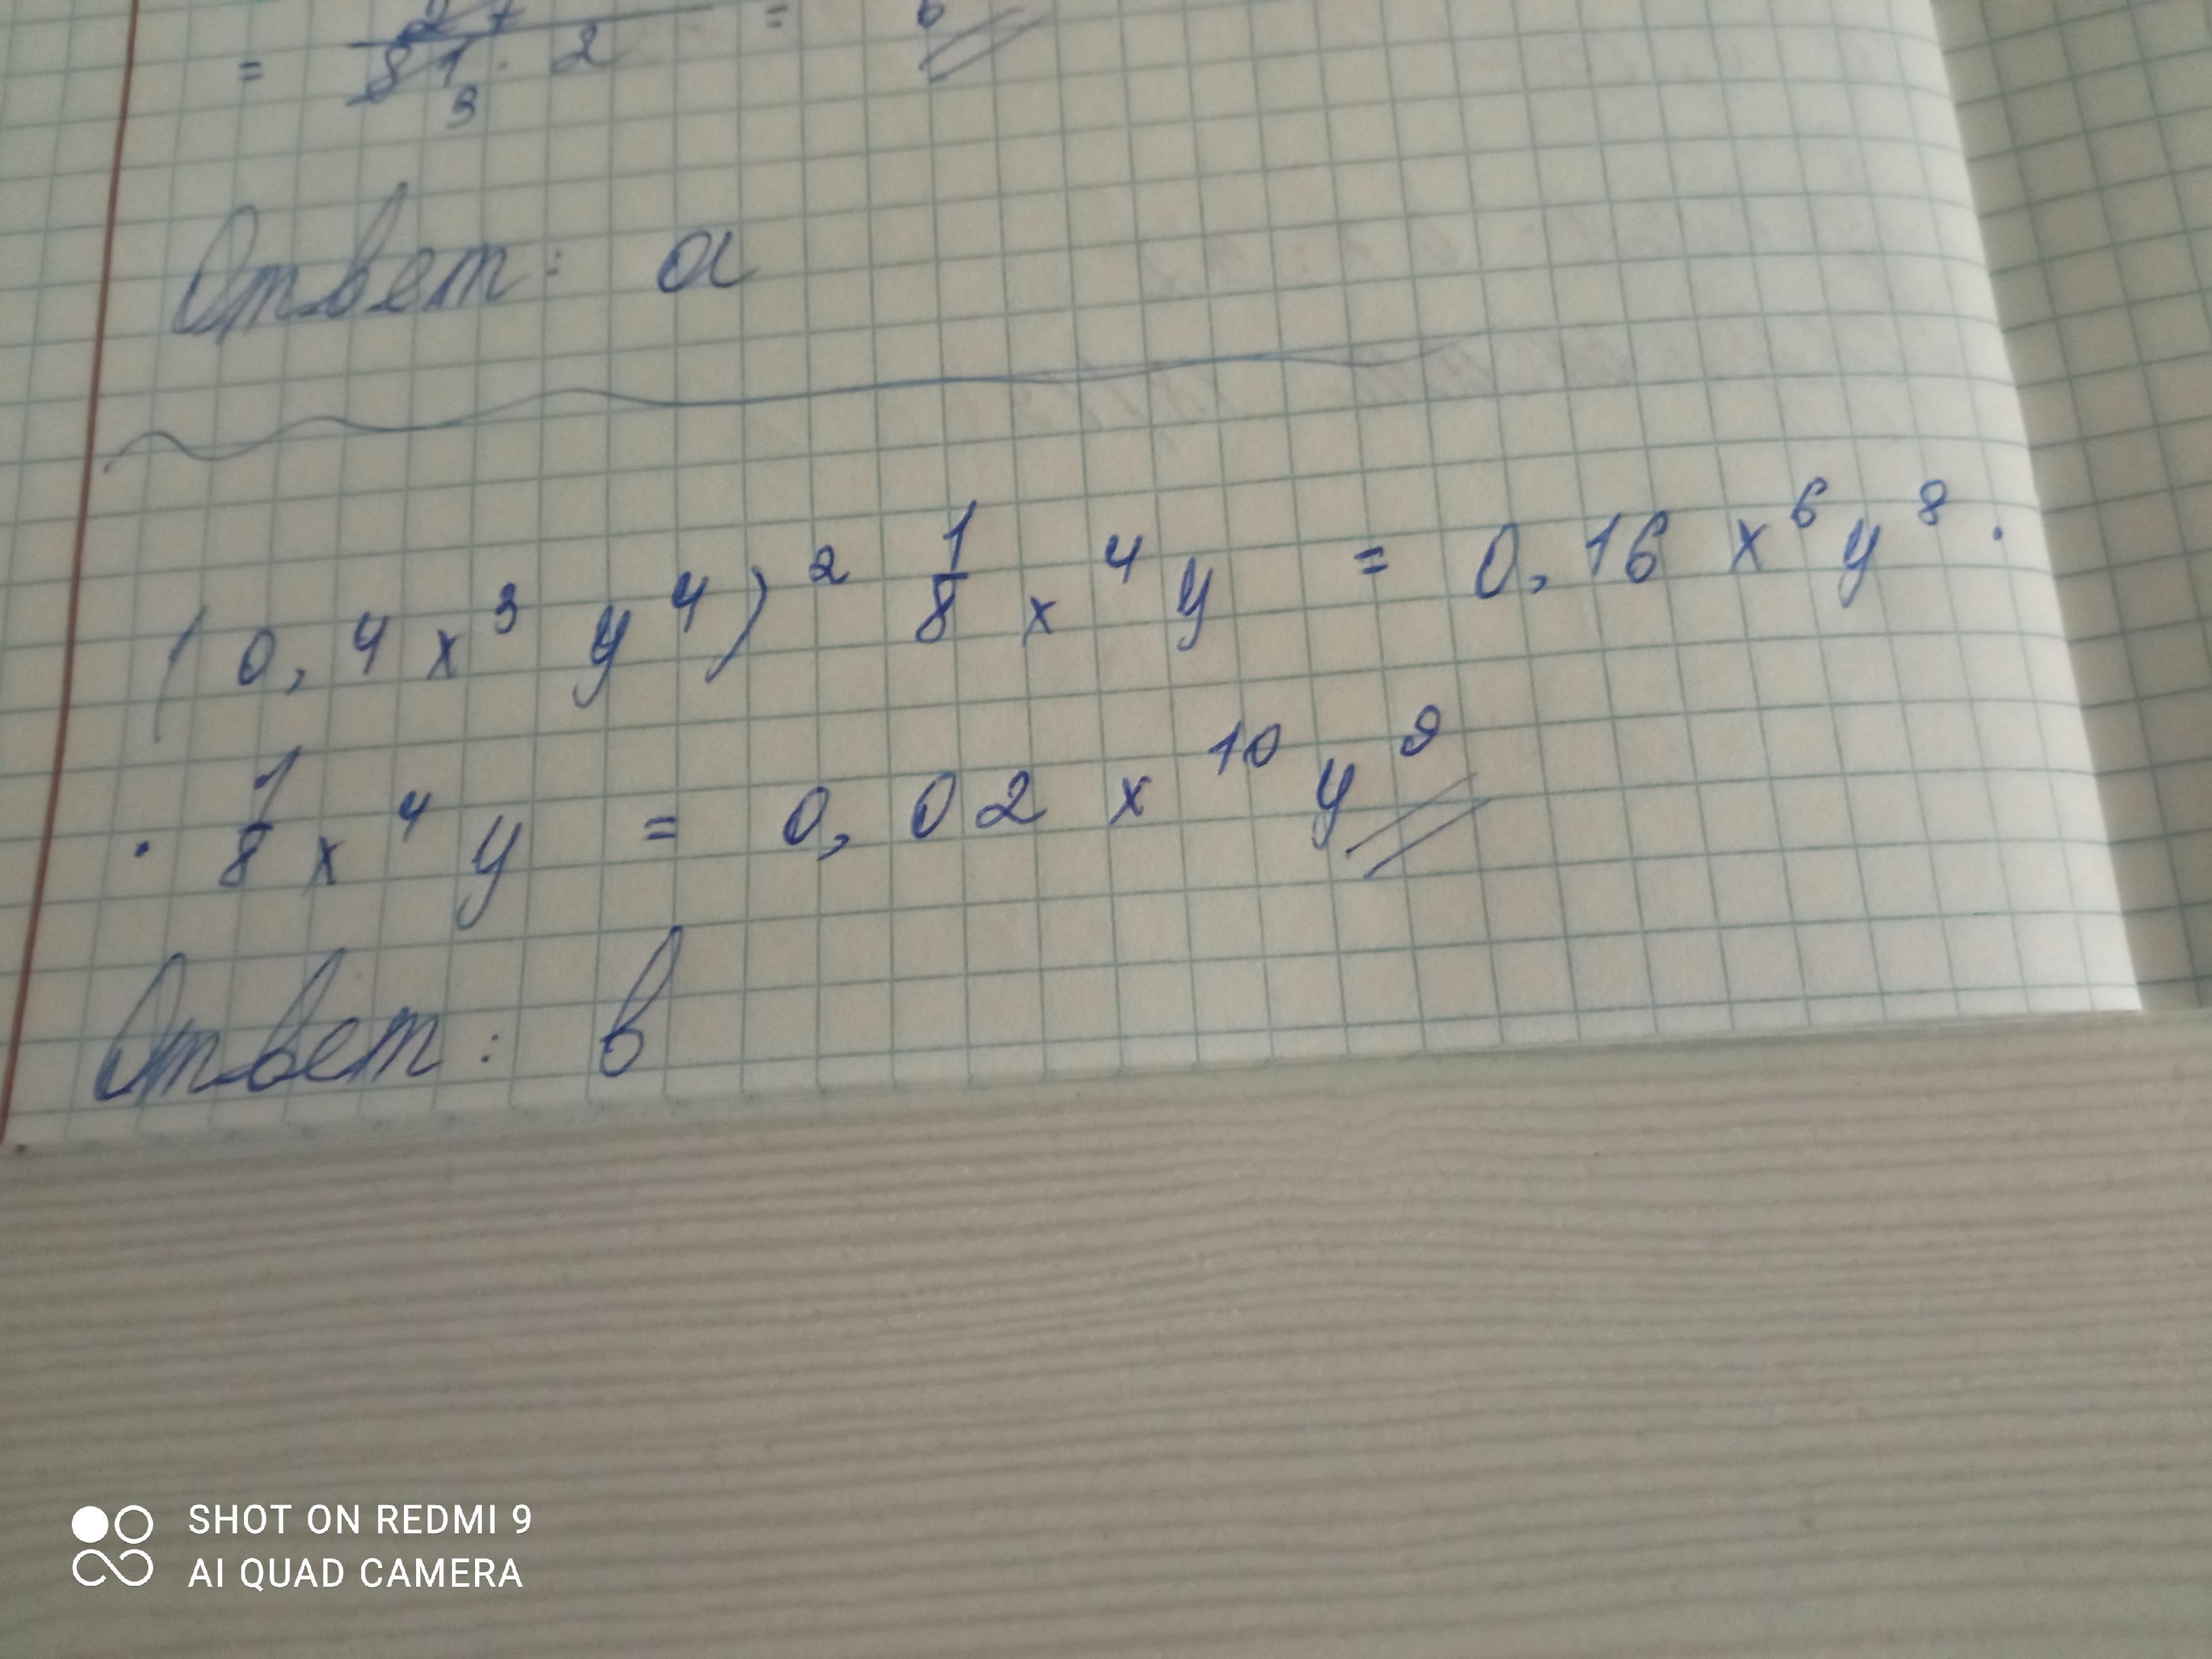 = 27/81·2 =
3
Ответ: а
(0,4x³y⁴)² 1/8 x⁴y = 0,16x⁶y⁸·
· 1/8 x⁴y = 0,02x¹⁰y⁹
Ответ: в
SHOT ON REDMI 9
AI QUAD CAMERA